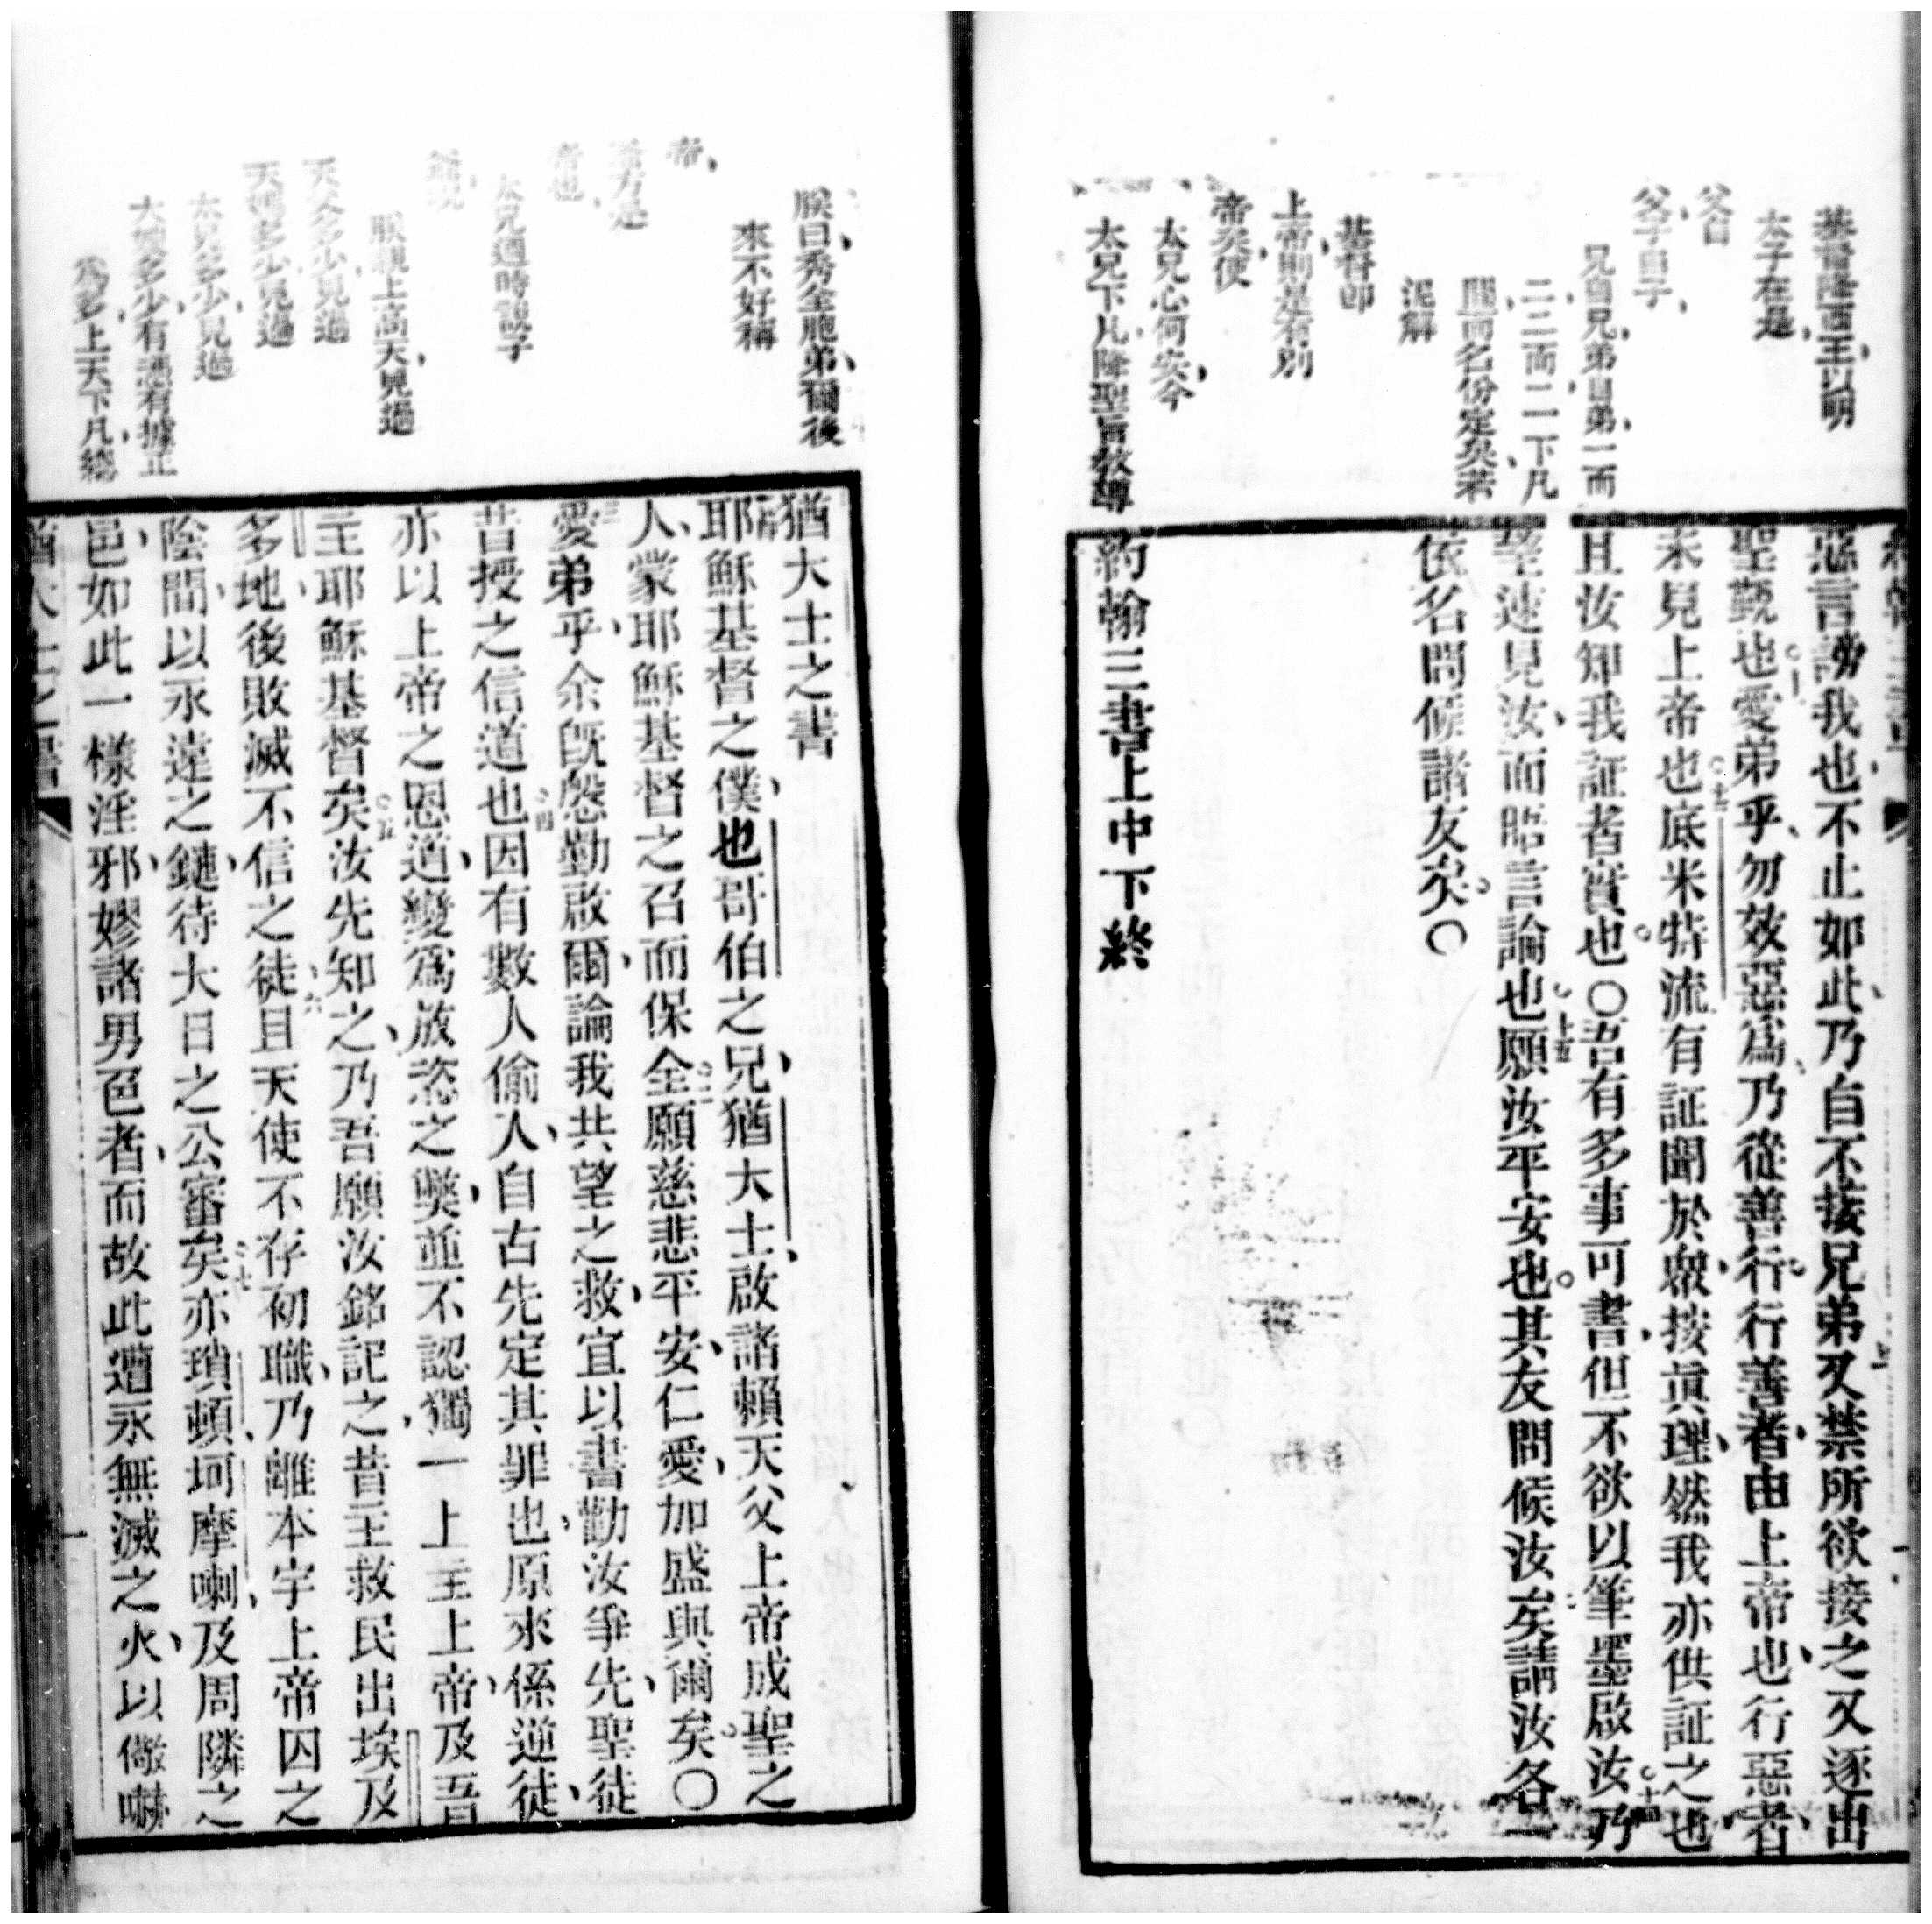 基督降西王以明
太子在是
父自
父子自子
兄自兄弟自弟一而
二二而一一下凡
間而名份定矣若
泥解
基督即
上帝則是有別
帝矣使
太兄心何安今
太兄下凡降聖旨教導
惡言謗我也不止如此乃自不接兄弟又禁所欲接之又逐出
聖氈也愛弟乎勿效惡爲乃從善行行善者由上帝也行惡者
未見上帝也底米特流有証聞於衆按眞理然我亦供証之也
且汝知我証者實也〇吾有多事可書但不欲以筆墨啟汝乃
望速見汝而晤言論也願汝平安也其友問候汝矣請汝各一
依名問候諸友矣〇
約翰三書上中下終
朕曰秀全胞弟爾後
來不好稱
帝
方是
帝也
太兄過時設子
朕親上高天見過
天父多少見過
天媽多少見過
太兄多少見過
大嫂多少有憑有據正
爲多上天下凡總
猶大士之書
耶穌基督之僕也哥伯之兄猶大士啟諸賴天父上帝成聖之
人蒙耶穌基督之召而保全願慈悲平安仁愛加盛與爾矣〇
愛弟乎余旣慇勤啟爾論我共望之救宜以書勸汝爭先聖徒
昔授之信道也因有數人偷人自古先定其罪也原來係逆徒
亦以上帝之恩道變爲放恣之獘並不認獨一上主上帝及吾
主耶穌基督矣汝先知之乃吾願汝銘記之昔主救民出埃及
多地後敗滅不信之徒且天使不存初職乃離本宇上帝囚之
陰間以永遠之鏈待大日之公審矣亦瑣頓坷摩喇及周隣之
邑如此一樣淫邪嫪諸男色者而故此遭永無滅之火以儆嚇
猶大士之書
一